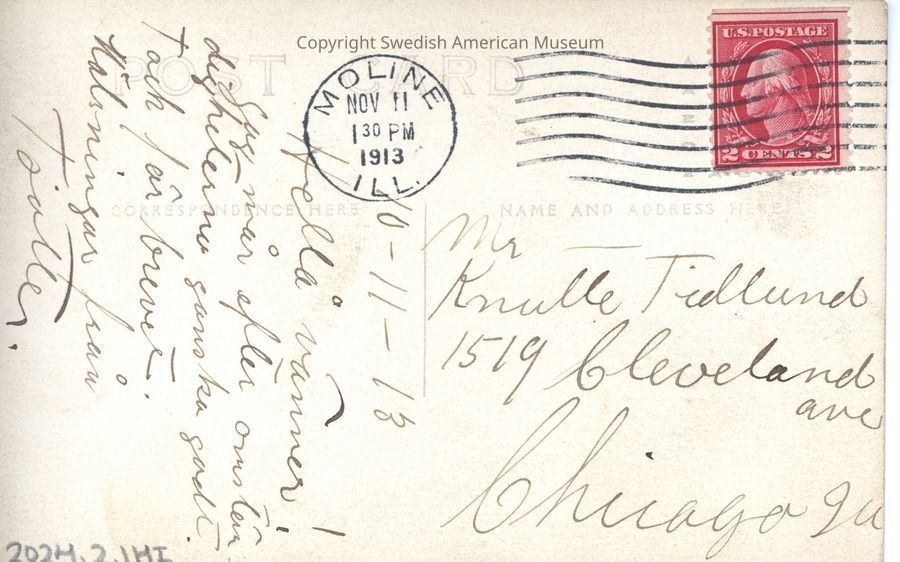 Copyright Swedish American Museum
POST CARD
MOLINE
NOV 11
1 30 PM
1913
ILL.
U.S. POSTAGE
2 CENTS 2
CORRESPONDENCE HERE
NAME AND ADDRESS HERE
10-11-13
Hella vänner!
Jag mår efter omstän
digheterna ganska godt.
Tack för brevet.
Hälsningar från
Mr
Knutte Tidlund
1519 Cleveland
ave
Chicago Ill
2024.2.1HI